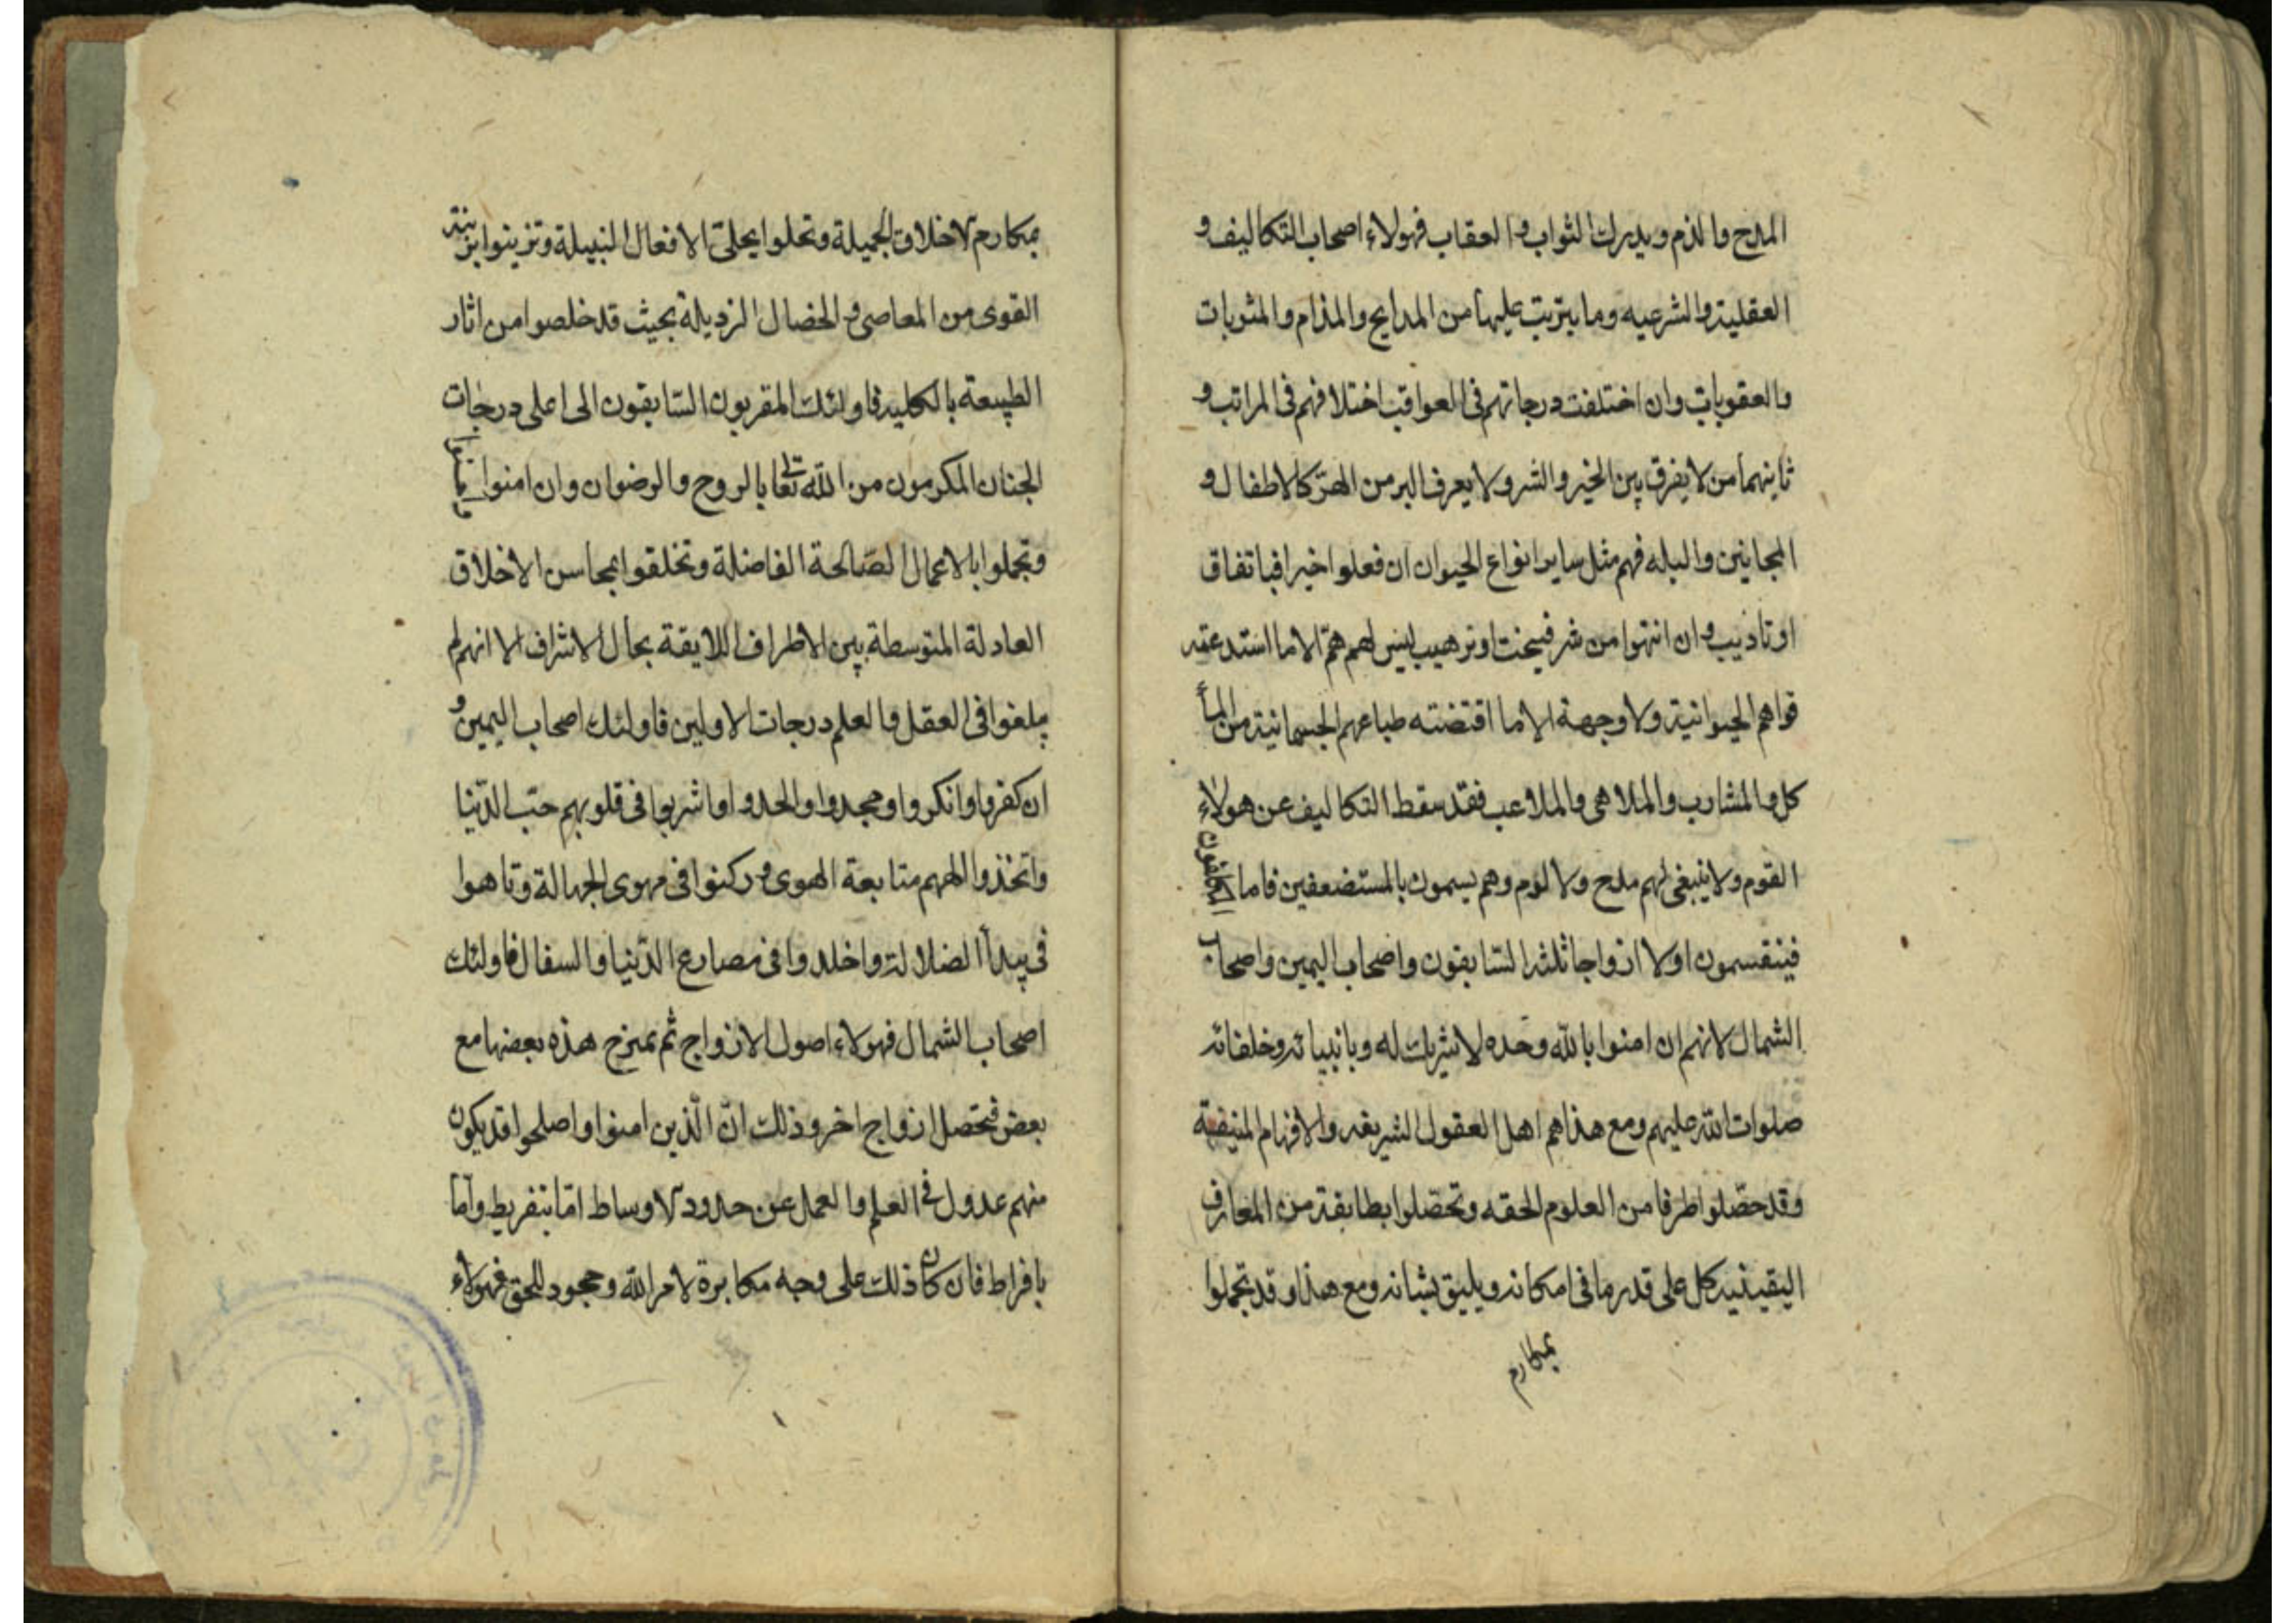 المدح والذم ويدرك الثواب والعقاب فهولاء اصحاب التكاليف و
العقلية والشرعيه وما يترتب عليها من المدايح والمذام والمثوبات
والعقوبات وان اختلفت درجاتهم فى العواقب اختلافهم فى المراتب و
ثانيهما من لا يفرق بين الخير والشر ولا يعرف البر من الهرّ كالاطفال و
المجانين والبله فهم مثل ساير انواع الحيوان ان فعلوا خيرا فباتفاق
او تاديب وان انتهوا من شر فببخت او ترهيب ليس لهم همّ الا ما استدعته
قواهم الحيوانية ولا وجهة الا ما اقتضته طباعهم الجسمانية من المآ
كل والمشارب والملاهى والملاعب فقد سقط التكاليف عن هولاء
القوم ولا ينبغى لهم مدح ولا لوم وهم يسمون بالمستضعفين فاما المكلفون
فينقسمون اولا ازواجا ثلثة السابقون واصحاب اليمين واصحاب
الشمال لانهم ان امنوا بالله وحده لا شريك له وبانبيائه وخلفائه
صلوات الله عليهم ومع هذا هم اهل العقول الشريفه والافهام المنيفة
وقد حصّلوا طرفا من العلوم الحقه وتحصّلوا بطايفة من المعارف
اليقينيه كل على قدر ما فى امكانه ويليق بشانه ومع هذا وقد تجملوا
بمكارم
بمكارم الاخلاق الجميلة وتحلوا بحلىّ الافعال النبيلة وتزينوا بزينة
القوى من المعاصى والخصال الرذيلة بحيث قد خلصوا من اثار
الطبيعة بالكليه فاولئك المقربون السّابقون الى اعلى درجات
الجنان المكرمون من الله تعالى بالروح والرضوان وان امنوا
وتجملوا بالاعمال الصّالحة الفاضلة وتخلقوا بمحاسن الاخلاق
العادلة المتوسطة بين الاطراف اللايقة بحال الاشراف الا انهم لم
يبلغوا فى العقل والعلم درجات الاولين فاولئك اصحاب اليمين و
ان كفروا وانكروا وجحدوا والحدوا واشربوا فى قلوبهم حبّ الدّنيا
واتخذوا الههم متابعة الهوى وركنوا فى مهوى الجهالة وتاهوا
فى بيدآ الضلالة واخلدوا فى مصارع الدّنيا والسفال فاولئك
اصحاب الشمال فهولاء اصول الازواج ثم يمتزج هذه بعضها مع
بعض فتحصل ازواج اخر وذلك انّ الّذين امنوا واصلحوا قد يكون
منهم عدول فى العلم والعمل عن حدود الاوساط امّا بتفريط وامّا
بافراط فان كان ذلك على وجه مكابرة لامر الله وجحود للحق فهولاء